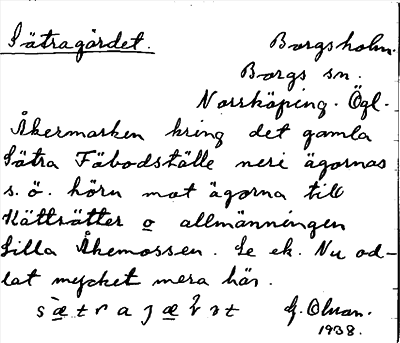 Sätragärdet.
Borgsholm.
Borgs sn.
Norrköping. Ögl.
Åkermarken kring det gamla
Sätra Fäbodställe neri ägornas
s. ö. hörn mot ägorna till
Hättsätter o allmänningen
Lilla Åkemossen. Se ek. Nu od-
lat mycket mera här.
G. Olson.
1938.